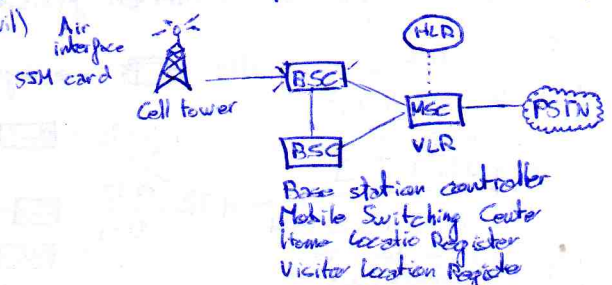 vii) Air
interface
SIM card
Cell tower
BSC
BSC
HLR
MSC
VLR
PSTN
Base station controller
Mobile Switching Center
Home Locatio Register
Visitor Location Registe